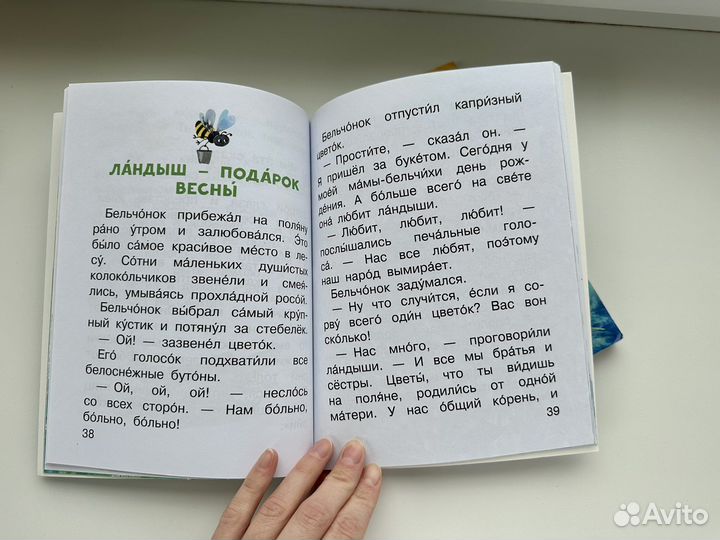 ЛА́НДЫШ – ПОДА́РОК
ВЕСНЫ́
Бельчо́нок прибежа́л на поля́ну
ра́но у́тром и залюбова́лся. Э́то
бы́ло са́мое краси́вое ме́сто в ле-
су́. Со́тни ма́леньких души́стых
колоко́льчиков звене́ли и смея́-
лись, умыва́ясь прохла́дной росо́й.
Бельчо́нок вы́брал са́мый кру́п-
ный ку́стик и потяну́л за стебелёк.
— Ой! — зазвене́л цвето́к.
Его́ голосо́к подхвати́ли все
белосне́жные буто́ны.
— Ой, ой, ой! — несло́сь
со всех сторо́н. — Нам бо́льно,
бо́льно, бо́льно!
38
Бельчо́нок отпусти́л капри́зный
цвето́к.
— Прости́те, — сказа́л он. —
Я пришёл за буке́том. Сего́дня у
мое́й ма́мы-бельчи́хи день рож-
де́ния. А бо́льше всего́ на све́те
она́ лю́бит ла́ндыши.
— Лю́бит, лю́бит, лю́бит! —
послы́шались печа́льные голо-
са́. — Нас все лю́бят, поэ́тому
наш наро́д вымира́ет.
Бельчо́нок заду́мался.
— Ну что случи́тся, е́сли я со-
рву́ всего́ оди́н цвето́к? Вас вон
ско́лько!
— Нас мно́го, — проговори́ли
ла́ндыши. — И все мы бра́тья и
сёстры. Цветы́, что ты ви́дишь
на поля́не, родили́сь от одно́й
ма́тери. У нас о́бщий ко́рень, и
39
Avito